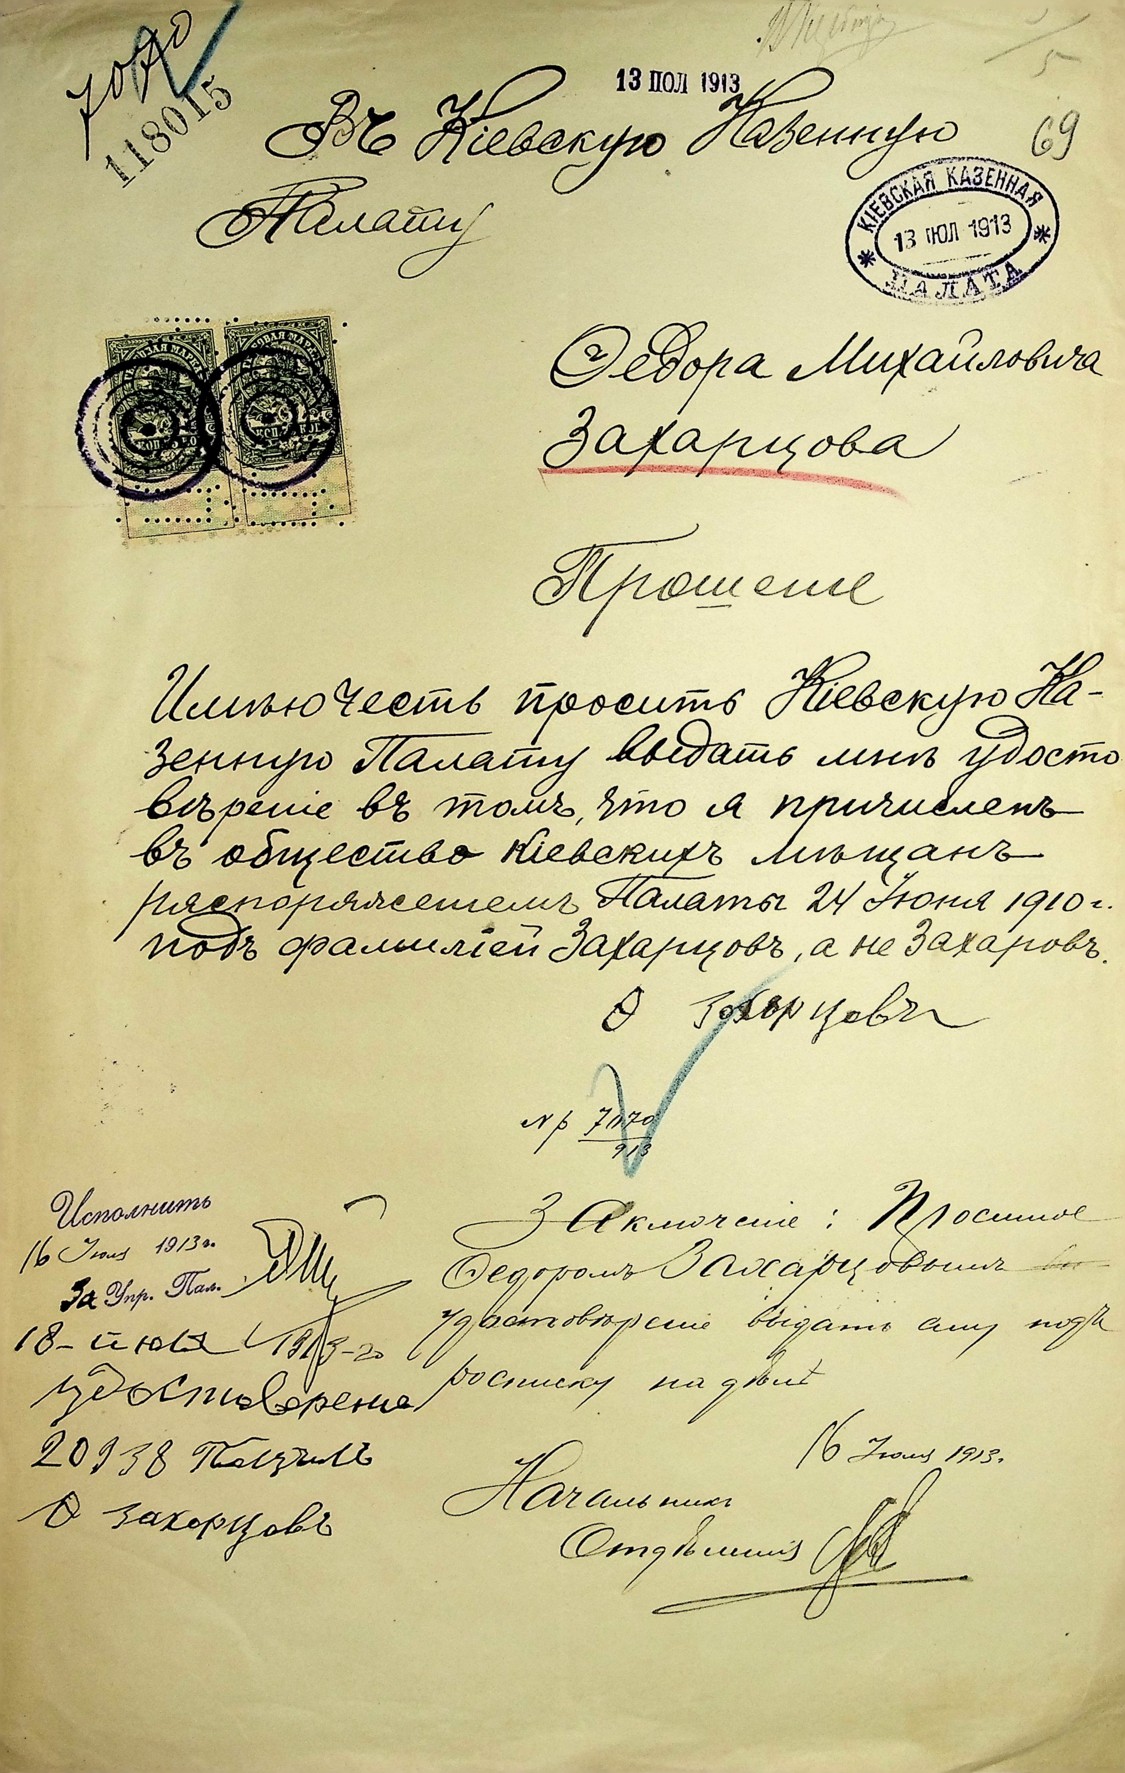 7070
118015
13 ІЮЛ 1913
69
5
Въ Кіевскую Казенную
Палату
КІЕВСКАЯ КАЗЕННАЯ
13 ІЮЛ 1913
ПАЛАТА
Ѳедора Михайловича
Захарцова
Прошеніе
Имѣю честь просить Кіевскую Ка-
зенную Палату выдать мнѣ удосто
вѣреніе въ томъ, что я причисленъ
въ общество Кіевскихъ мѣщанъ
распоряженіемъ Палаты 24 Іюня 1910 г.
подъ фамиліей Захарцовъ, а не Захаровъ.
Ѳ Захарцовъ
Nр 7070
913
Исполнить
16 Іюля 1913 г.
За Упр. Пал.
18-июля 1913-го
удостоверение
20938 Полу́чилъ
Ѳ Захорцовъ
Заключеніе: Просимое
Ѳедоромъ Захарцовымъ
удостовѣреніе выдать ему подъ
росписку на дѣлѣ
16 Іюля 1913.
Начальникъ
Отдѣленія